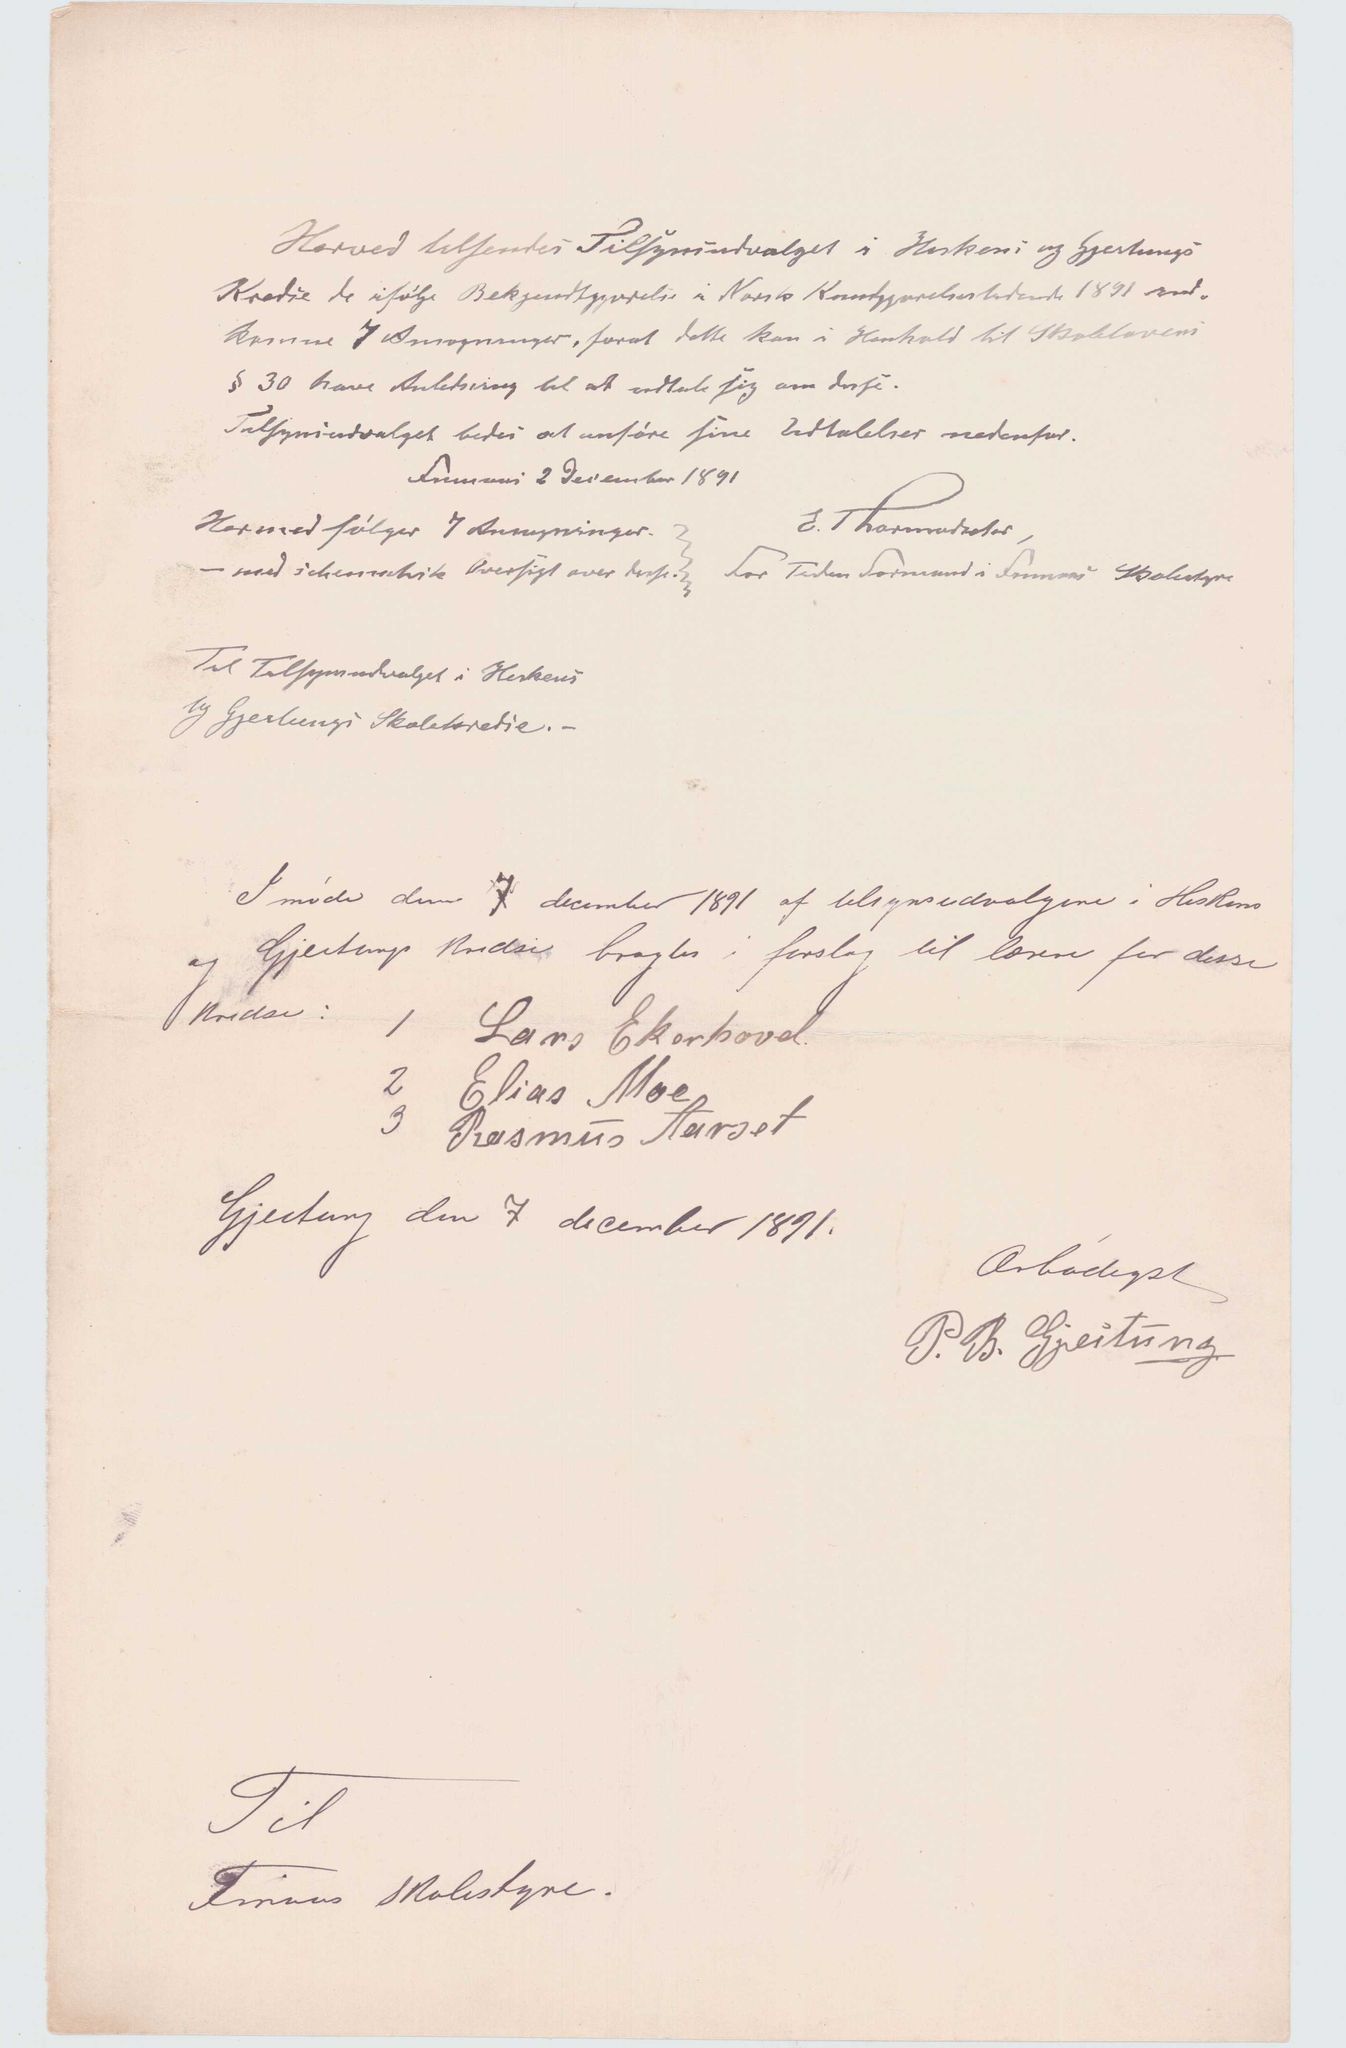 Herved tilsendes Tilsynsudvalget i Heskens og Gjertungs
Kredse de ifølge Bekjendtgjørelse i Norsk Kundgjørelsestidende 1891 ind-
komne 7 Ansøgninger, forat dette kan i Henhold til Skolelovens
§ 30 have Anledning til at udtale sig om disse.
Tilsynsudvalget bedes at anføre sine Udtalelser nedenfor.
Finnaas 2 December 1891
Hermed følger 7 Ansøgninger.
— med schematisk Oversigt over disse.
E. Thormodsæter,
For Tiden Formand i Finnaas Skolestyre
Til Tilsynsudvalget i Heskens
og Gjertungs Skolekredse. —
I møde den 7 december 1891 af tilsynsudvalgene i Heskens
og Gjeitungs kredse bragtes i forslag til lærere for disse
kredse:
1 Lars Ekerhovd.
2 Elias Moe
3 Rasmus Aarset
Gjeitung den 7 december 1891.
Ærbødigst
P. B. Gjeitung
Til
Finnaas skolestyre.